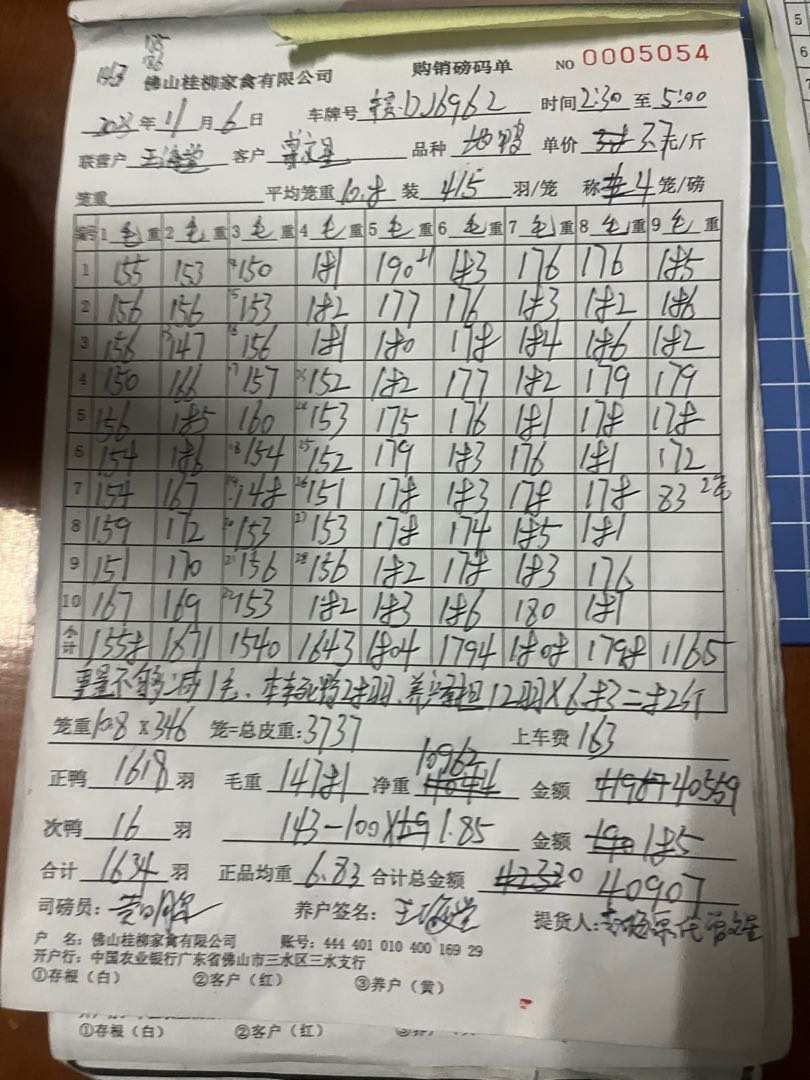 143 125
126
佛山桂柳家禽有限公司 购销磅码单 NO 0005054
2023年11月6日 车牌号 D16962 时间2:30至5:00
联营户 王海堂 客户 曾文星 品种 单价 37元/斤
笼重 平均笼重10.8 装 4/5 羽/笼 称4笼/磅
编号 1毛重 2毛重 3毛重 4毛重 5毛重 6毛重 7毛重 8毛重 9毛重
1 155 153 150 181 190 183 176 176 185
2 156 156 153 182 177 176 183 182 186
3 156 147 156 181 180 178 184 186 182
4 150 166 157 152 182 177 182 179 179
5 156 185 160 153 175 176 181 178 178
6 154 186 154 152 179 183 176 181 172
7 154 167 148 151 178 183 178 178 83 2笼
8 159 172 153 153 178 174 185 181
9 151 170 156 156 182 178 183 176
10 167 169 153 182 183 186 180 181
小计 1558 1671 1540 1643 1804 1794 1808 1798 1165
重量不够减1毛、车车死鸭28羽、养户承担12羽×683=82斤
笼重10.8×346 笼=总皮重:3737 上车费163
正鸭1618羽 毛重14781 净重10962 金额40559
次鸭16羽 143-100×1.85 金额185
合计1634羽 正品均重6.83 合计总金额 42320 40907
司磅员: 养户签名:王海堂 提货人:
户 名:佛山桂柳家禽有限公司 账号:444 401 010 400 169 29
开户行:中国农业银行广东省佛山市三水区三水支行
①存根(白) ②客户(红) ③养户(黄)
①存根(白) ②客户(红)